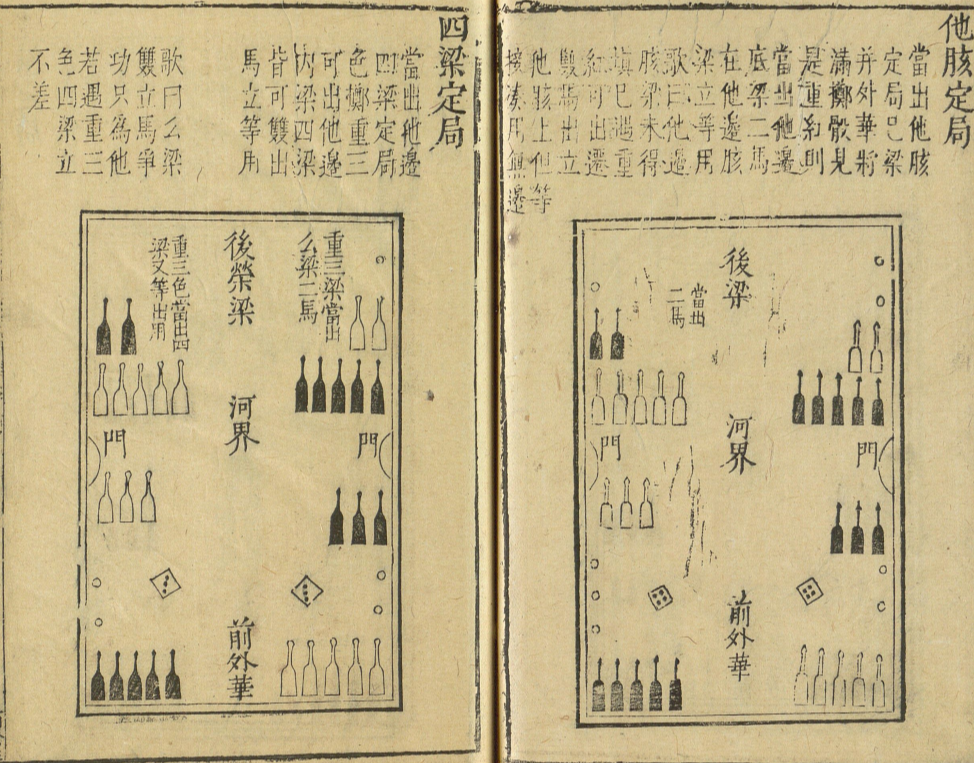 他胲定局
當出他胲
定局㠯梁
并外華將
滿擲骰見
是重紅則
當出他邊
底梁二馬
在他邊胲
梁立等用
歌曰他邊
胲梁未得
填已遇重
紅可出遷
雙馬出立
他胲上但等
接湊用無邊
後梁
當出
二馬
門
河界
門
前外華
四梁定局
當出他邊
四梁定局
色擲重三
可出他邊
內梁四梁
皆可雙出
馬立等用
歌曰么梁
雙立馬爭
功只為他
若遇重三
色四梁立
不差
重三梁當出
么梁二馬
後榮梁
重三色當出四
梁又等出用
門
河界
門
前外華